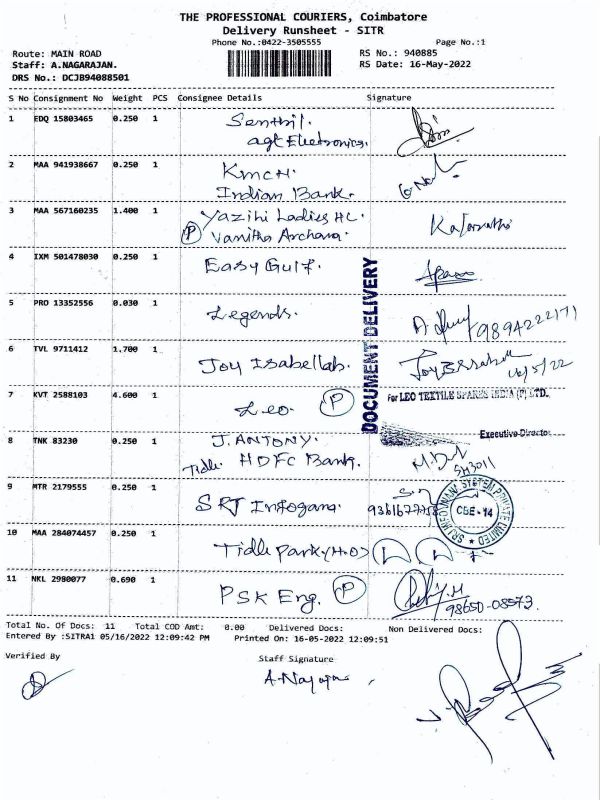 THE PROFESSIONAL COURIERS, Coimbatore
Delivery Runsheet - SITR
Phone No.:0422-3505555
Page No.:1
Route: MAIN ROAD
RS No.: 940885
Staff: A.NAGARAJAN.
RS Date: 16-May-2022
DRS No.: DCJB94088501
S No Consignment No Weight PCS Consignee Details Signature
1 EDQ 15803465 0.250 1 Senthil.
agt Electronics.
2 MAA 941938667 0.250 1 KMCH.
Indian Bank.
3 MAA 567160235 1.400 1 Yazihi Ladies HC.
P Vanitha Archana.
4 IXM 501478030 0.250 1 Easy Gulf.
DOCUMENT DELIVERY
5 PRO 13352556 0.030 1 Legends.
9894222171
6 TVL 9711412 1.700 1 Joy Isabellah.
16/5/22
7 KVT 2588103 4.600 1 Leo. P
For LEO TEXTILE SPARES INDIA (P) LTD.
Executive Director
8 TNK 83230 0.250 1 J. ANTONY.
Tidle. HDFC Bank.
9 MTR 2179555 0.250 1 SRJ Infogana.
CBE-14
10 MAA 284074457 0.250 1 Tidle Park (H.O)
11 NKL 2980077 0.690 1 PSK Eng. P
98650-08573.
Total No. Of Docs: 11 Total COD Amt: 0.00 Delivered Docs: Non Delivered Docs:
Entered By :SITRA1 05/16/2022 12:09:42 PM Printed On: 16-05-2022 12:09:51
Verified By
Staff Signature